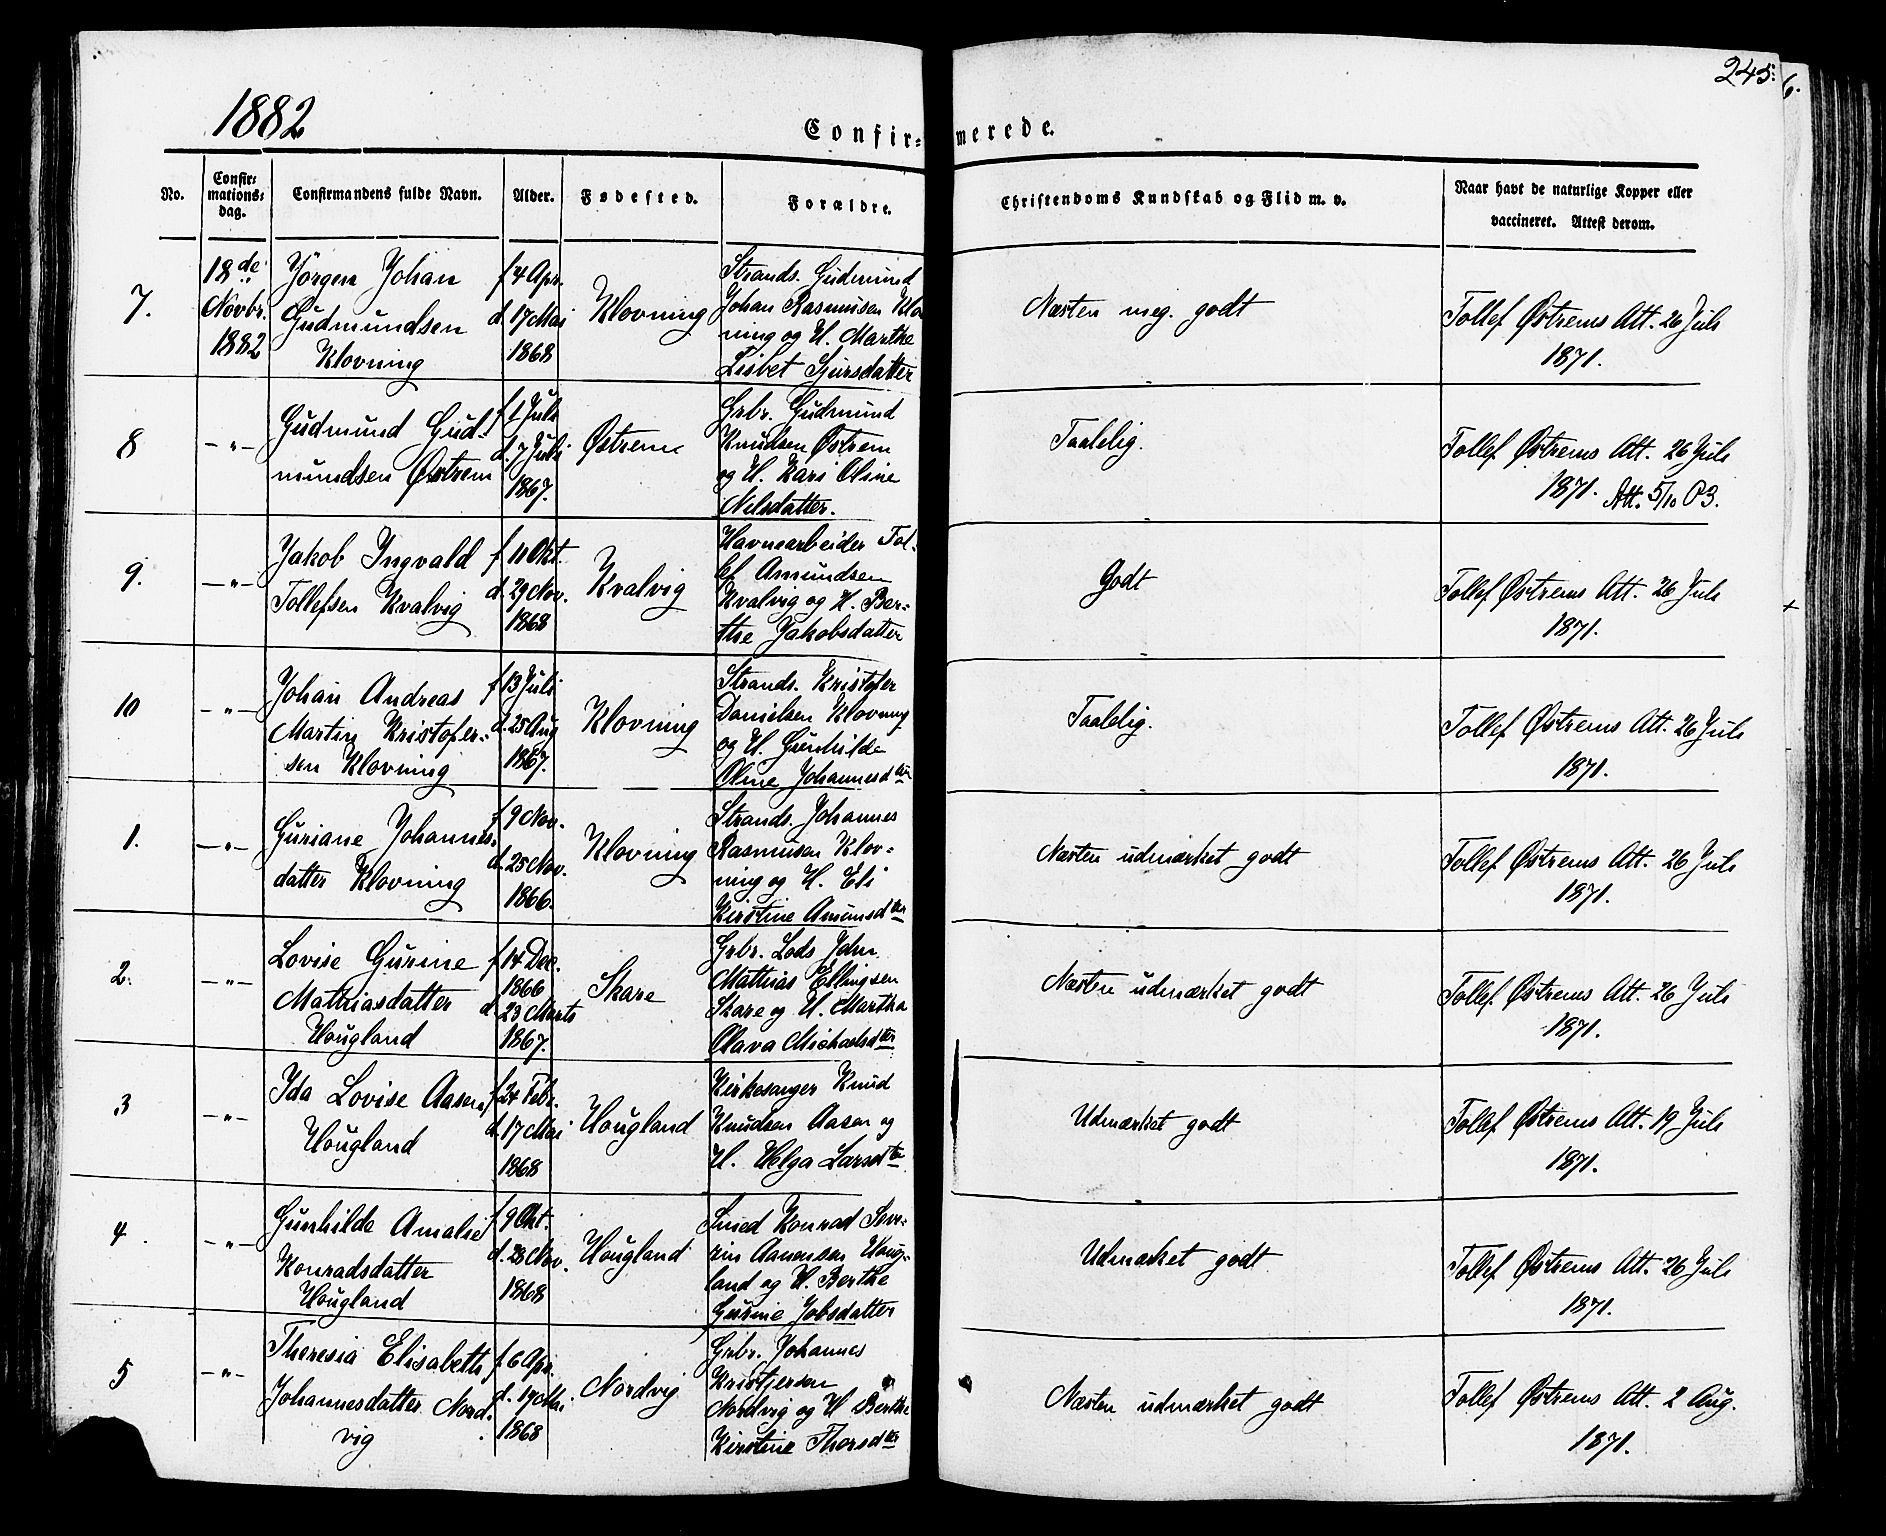 245.
6.
1882
Confir=merede.
No.
Confir=
mations=
dag.
Confirmandens fulde Navn.
Alder.
Fødested.
Forældre.
Christendoms Kundskab og Flid m. v.
Naar havt de naturlige Kopper eller
vaccineret. Attest derom.
7.
18de
Novbr.
1882
Jörgen Johan
Gudmundsen
Klovning
f 4 Apr.
d. 17 Mai
1868
Klovning
Strands. Gudmund
Johan Rasmusen Klo
ning og H. Marthe
Lisbet Sjursdatter
Næsten meg. godt
Tollef Østrems Att. 26 Juli
1871.
8
—"—
Gudmund Gud-
mundsen Østrem
f 1 Juli
d. 7 Juli
1867.
Østrem
Grbr. Gudmund
Knudsen Østrem
og H. Kari Oline
Nilsdatter.
Taalelig.
Tollef Østrems Att. 26 Juli
1871. Att. 5/10 03.
9.
—"—
Jakob Ingvald
Tollefsen Kvalvig
f 11 Okt.
d. 29 Nov.
1868
Kvalvig
Havnearbeider Tol-
lef Amundsen
Kvalvig og H. Ber-
the Jakobsdatter
Godt
Tollef Østrems Att. 26 Juli
1871.
10
—"—
Johan Andreas
Martin Kristofer-
sen Klovning
f 13 Juli
d. 25 Aug
1867.
Klovning
Strands. Kristofer
Danielsen Klovning
og H. Gunhilde
Oline Johannesdter
Taalelig.
Tollef Østrems Att. 26 Juli
1871.
1.
—"—
Guriane Johannes-
datter Klovning
f 9 Nov.
d. 25 Nov.
1866.
Klovning
Strands. Johannes
Rasmusen Klov-
ning og H. Eli
Kirstine Amundter
Næsten udmærket godt
Tollef Østrems Att. 26 Juli
1871.
2.
—"—
Lovise Gurine
Mathiasdatter
Hougland
f 14 Dec.
1866
d. 23 Marts
1867.
Skare
Grbr. Lods John
Mathias Ellingsen
Skare og H. Martha
Olava Michaelsdter
Næsten udmærket godt
Tollef Østrems Att. 26 Juli
1871.
3
—"—
Ida Lovise Aasen
Hougland
f 24 Febr.
d. 17 Mai
1868
Hougland
Kirkesanger Knud
Knudsen Aasen og
H. Helga Larsdtr
Udmærket godt
Tollef Østrems Att. 19 Juli
1871.
4.
—"—
Gunhilde Amalie
Konradsdatter
Hougland
f 9 Okt.
d. 28 Nov.
1868
Hougland
Smed Konrad Seve-
rin Aanensen Houg-
land og H. Berthe
Gurine Jobsdatter
Udmærket godt
Tollef Østrems Att. 26 Juli
1871.
5
—"—
Theresia Elisabeth
Johannesdatter Nord-
vig
f 6 Apr.
d. 19 Mai
1868
Nordvig
Grbr. Johannes
Kristjersen
Nordvig og H Berthe
Kirstine Thorsdter
Næsten udmærket godt
Tollef Østrems Att. 2 Aug.
1871.